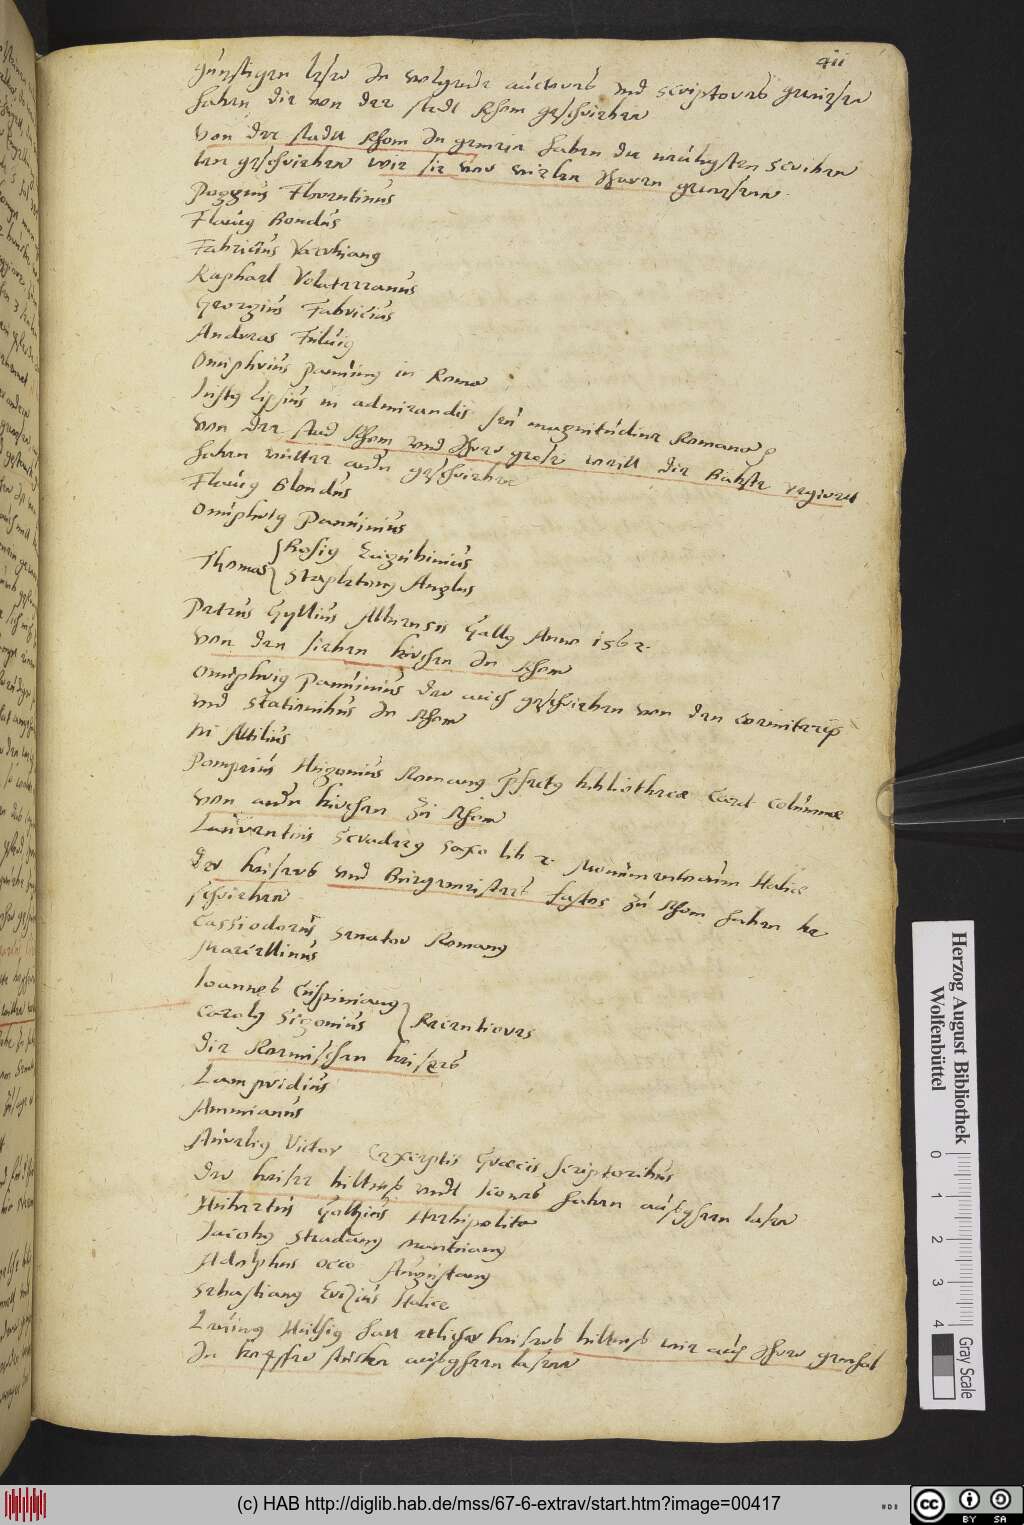 411
günstigen leser in volgende auctores und scriptores gewiesen
haben die von der stadt Rhom geschrieben
von der stadt Rhom in gemein haben die neuhesten scriben
ten geschrieben wie sie vor vielen Jharen gewesen
Poggius Florentinus
Flavius Bondus
Fabricius Varrhianus
Raphael Volaterranus
Georgius Fabricius
Andreas Fulvius
Onuphrius Panuinus in Roma
Justus Lipsius in admirandis seu magnitudine Romana
von der stad Rhom und Jhrer grose weill die Bäbste regiert
haben unter andern geschrieben
Flavius Blondus
Onuphrius Panuinius
Thomas
Bosius Eugubinius
Stapletonus Anglus
Petrus Gyllius Albiensis Gallus Anno 1562.
von den sieben kirchen in Rhom
Onuphrius Panuinius der auch geschrieben von den coemiteriis
und stationibus in Rhom
M Attilius
Pompeius Ugonius Romanus praefectus bibliothecae Card Columnae
von andern kirchen zu Rhom
Laurentius Scraderus Saxo lib 2. Monumentorum Italiae
der keisers und Burgemeisters fastos zu Rhom haben be
schrieben
Cassiodorus senator Romanus
Marcellinus
Joannes Cuspinianus
Carolus Sigonius
Recentiores
die Roemischen keisers
Lampridius
Ammianus
Aurelius Victor Excerptis Graecis scriptoribus
der keiser biltnus undt Icones haben aussgehen lasen
Hubertus Goltzius Herbipolita
Jacobus Stradanus Mantuanus
Adolphus Occo Augustanus
Sebastianus Erizius Italiae
Levinus Hulsius hatt etliche keisers biltnus wie auch Jhrer gemhal
In kopffer stucken aussgehen lassen
Herzog August Bibliothek
Wolfenbüttel
0 1 2 3 4
Gray Scale
(c) HAB http://diglib.hab.de/mss/67-6-extrav/start.htm?image=00417
cc BY SA